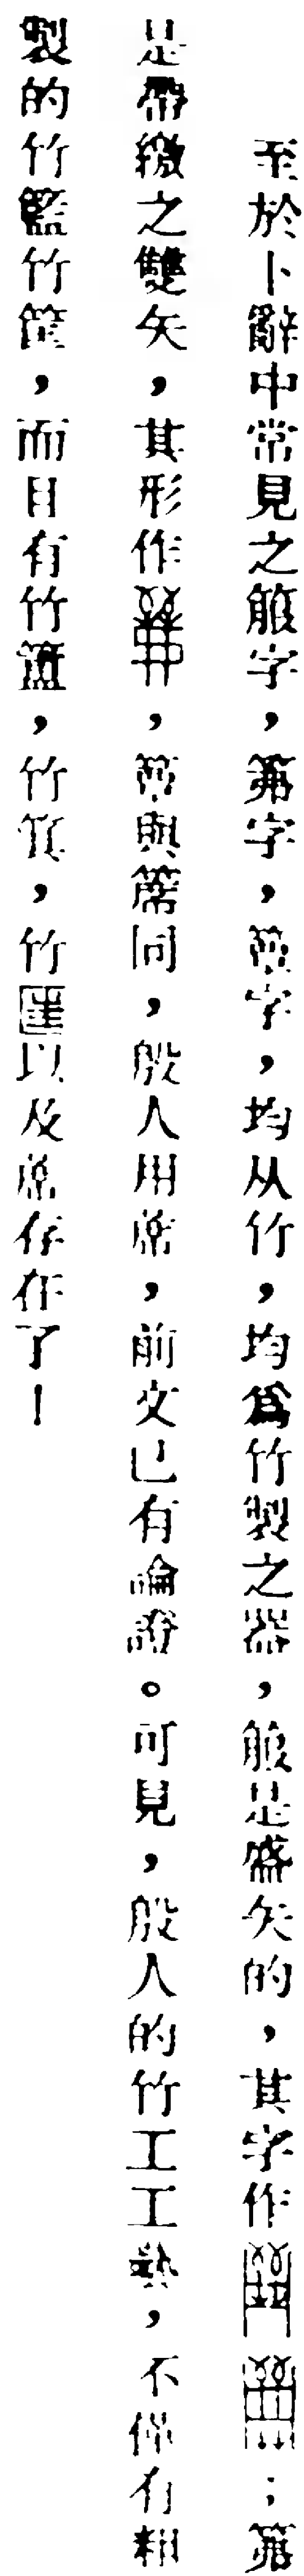 至於卜辭中常見之箙字，箒字，𥬰字，均从竹，均為竹製之器，箙是盛矢的，其字作；
是帶繳之雙矢，其形作，與席同，殷人用席，前文已有論證。可見，殷人的竹工工藝，不僅有粗
製的竹籃竹筐，而且有竹簠，竹筥，竹匡以及席存在了！